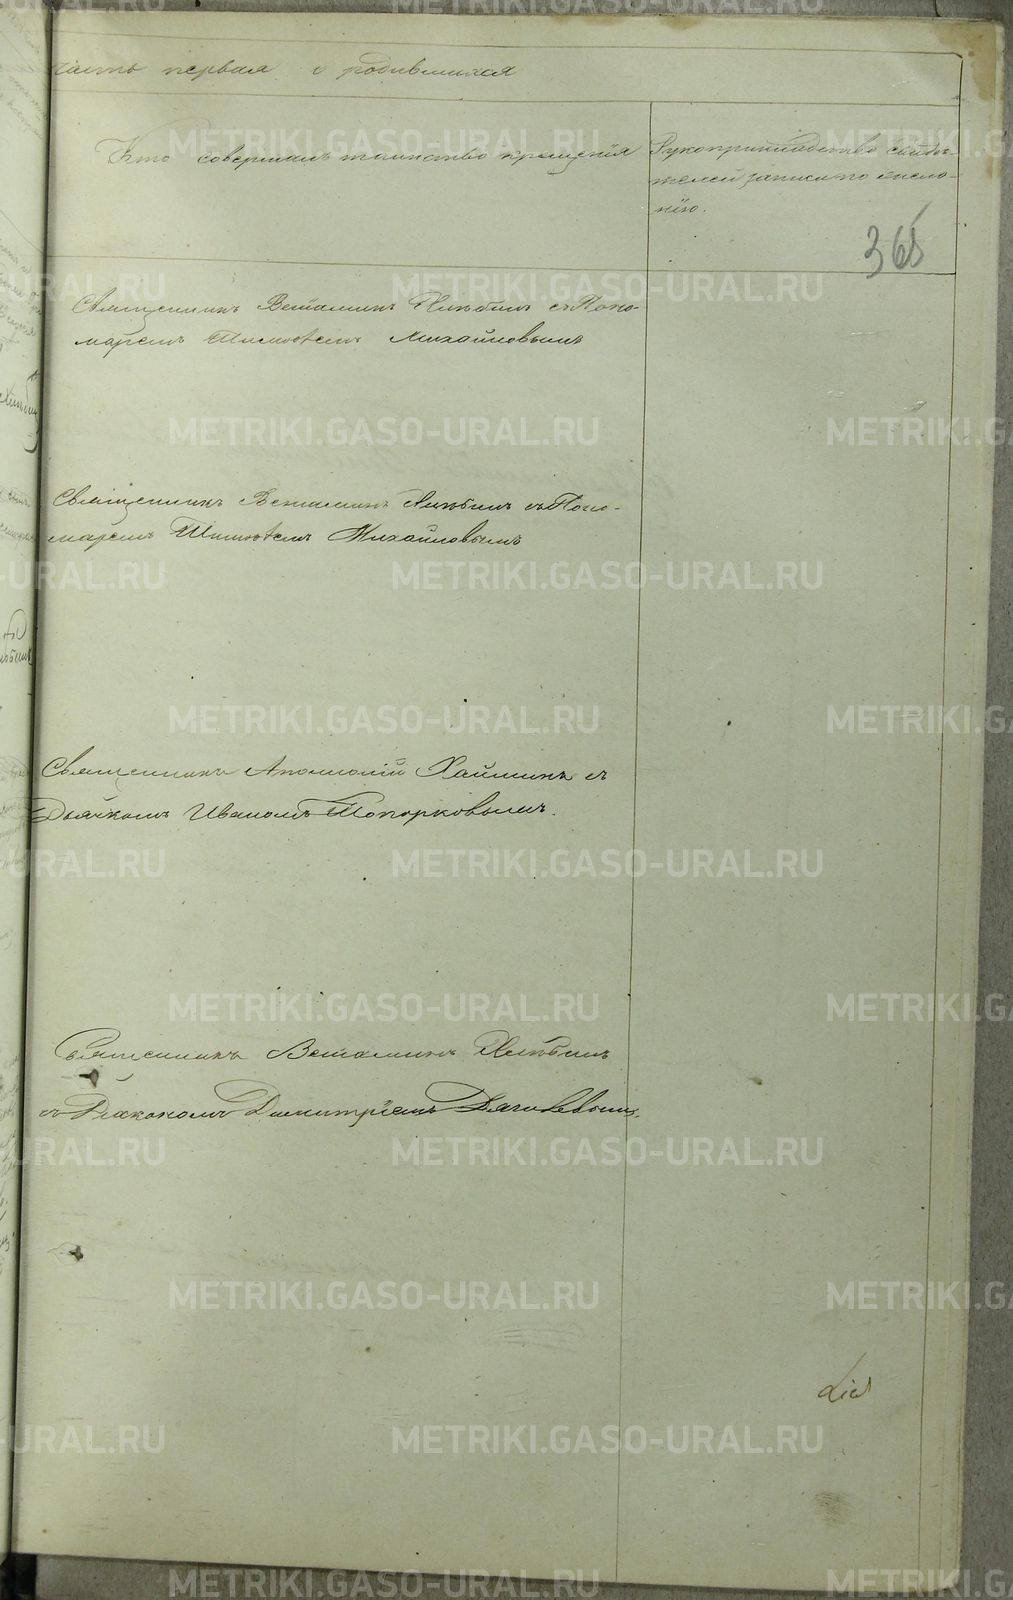 часть первая о родившихся
Кто совершалъ таинство крещенія
Рукоприкладство свидѣ-
телей записи по жела-
нію.
365
Священникъ Веніаминъ Хлѣбинъ съ Поно-
маремъ Тимоѳеемъ Михайловымъ
Священникъ Веніаминъ Хлѣбинъ съ Поно-
маремъ Тимоѳеемъ Михайловымъ
Священникъ Апполоній Хайминъ съ
Дьячкомъ Иваномъ Топорковымъ.
Священникъ Веніаминъ Хлѣбинъ
съ Діакономъ Димитріемъ Дягилевымъ.
METRIKI.GASO-URAL.RU